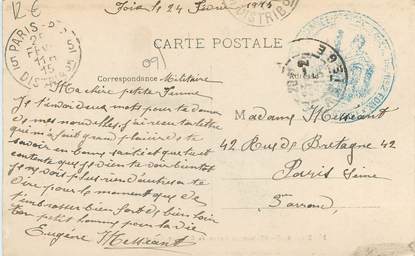 12 €
Foix le 24 Février 1915
PARIS
DISTRIB
CARTE POSTALE
09
Correspondance Militaire
Ma chère petite Femme
Je t'envoi deux mots pour te donner
de mes nouvelles, j'ai reçu ta lettre
qui m'a fait grand plaisir de te
savoir en bonne santé et que tu est
contente que je vien te voir bientot
Je ne vois plus rien d'autre a te
dire pour le moment que de
t'embrasser bien fort de bien loin
Ton petit homme pour la vie
Eugène Messéant
Madame Messéant
42 Rue de Bretagne 42
Paris Seine
3e arrond.